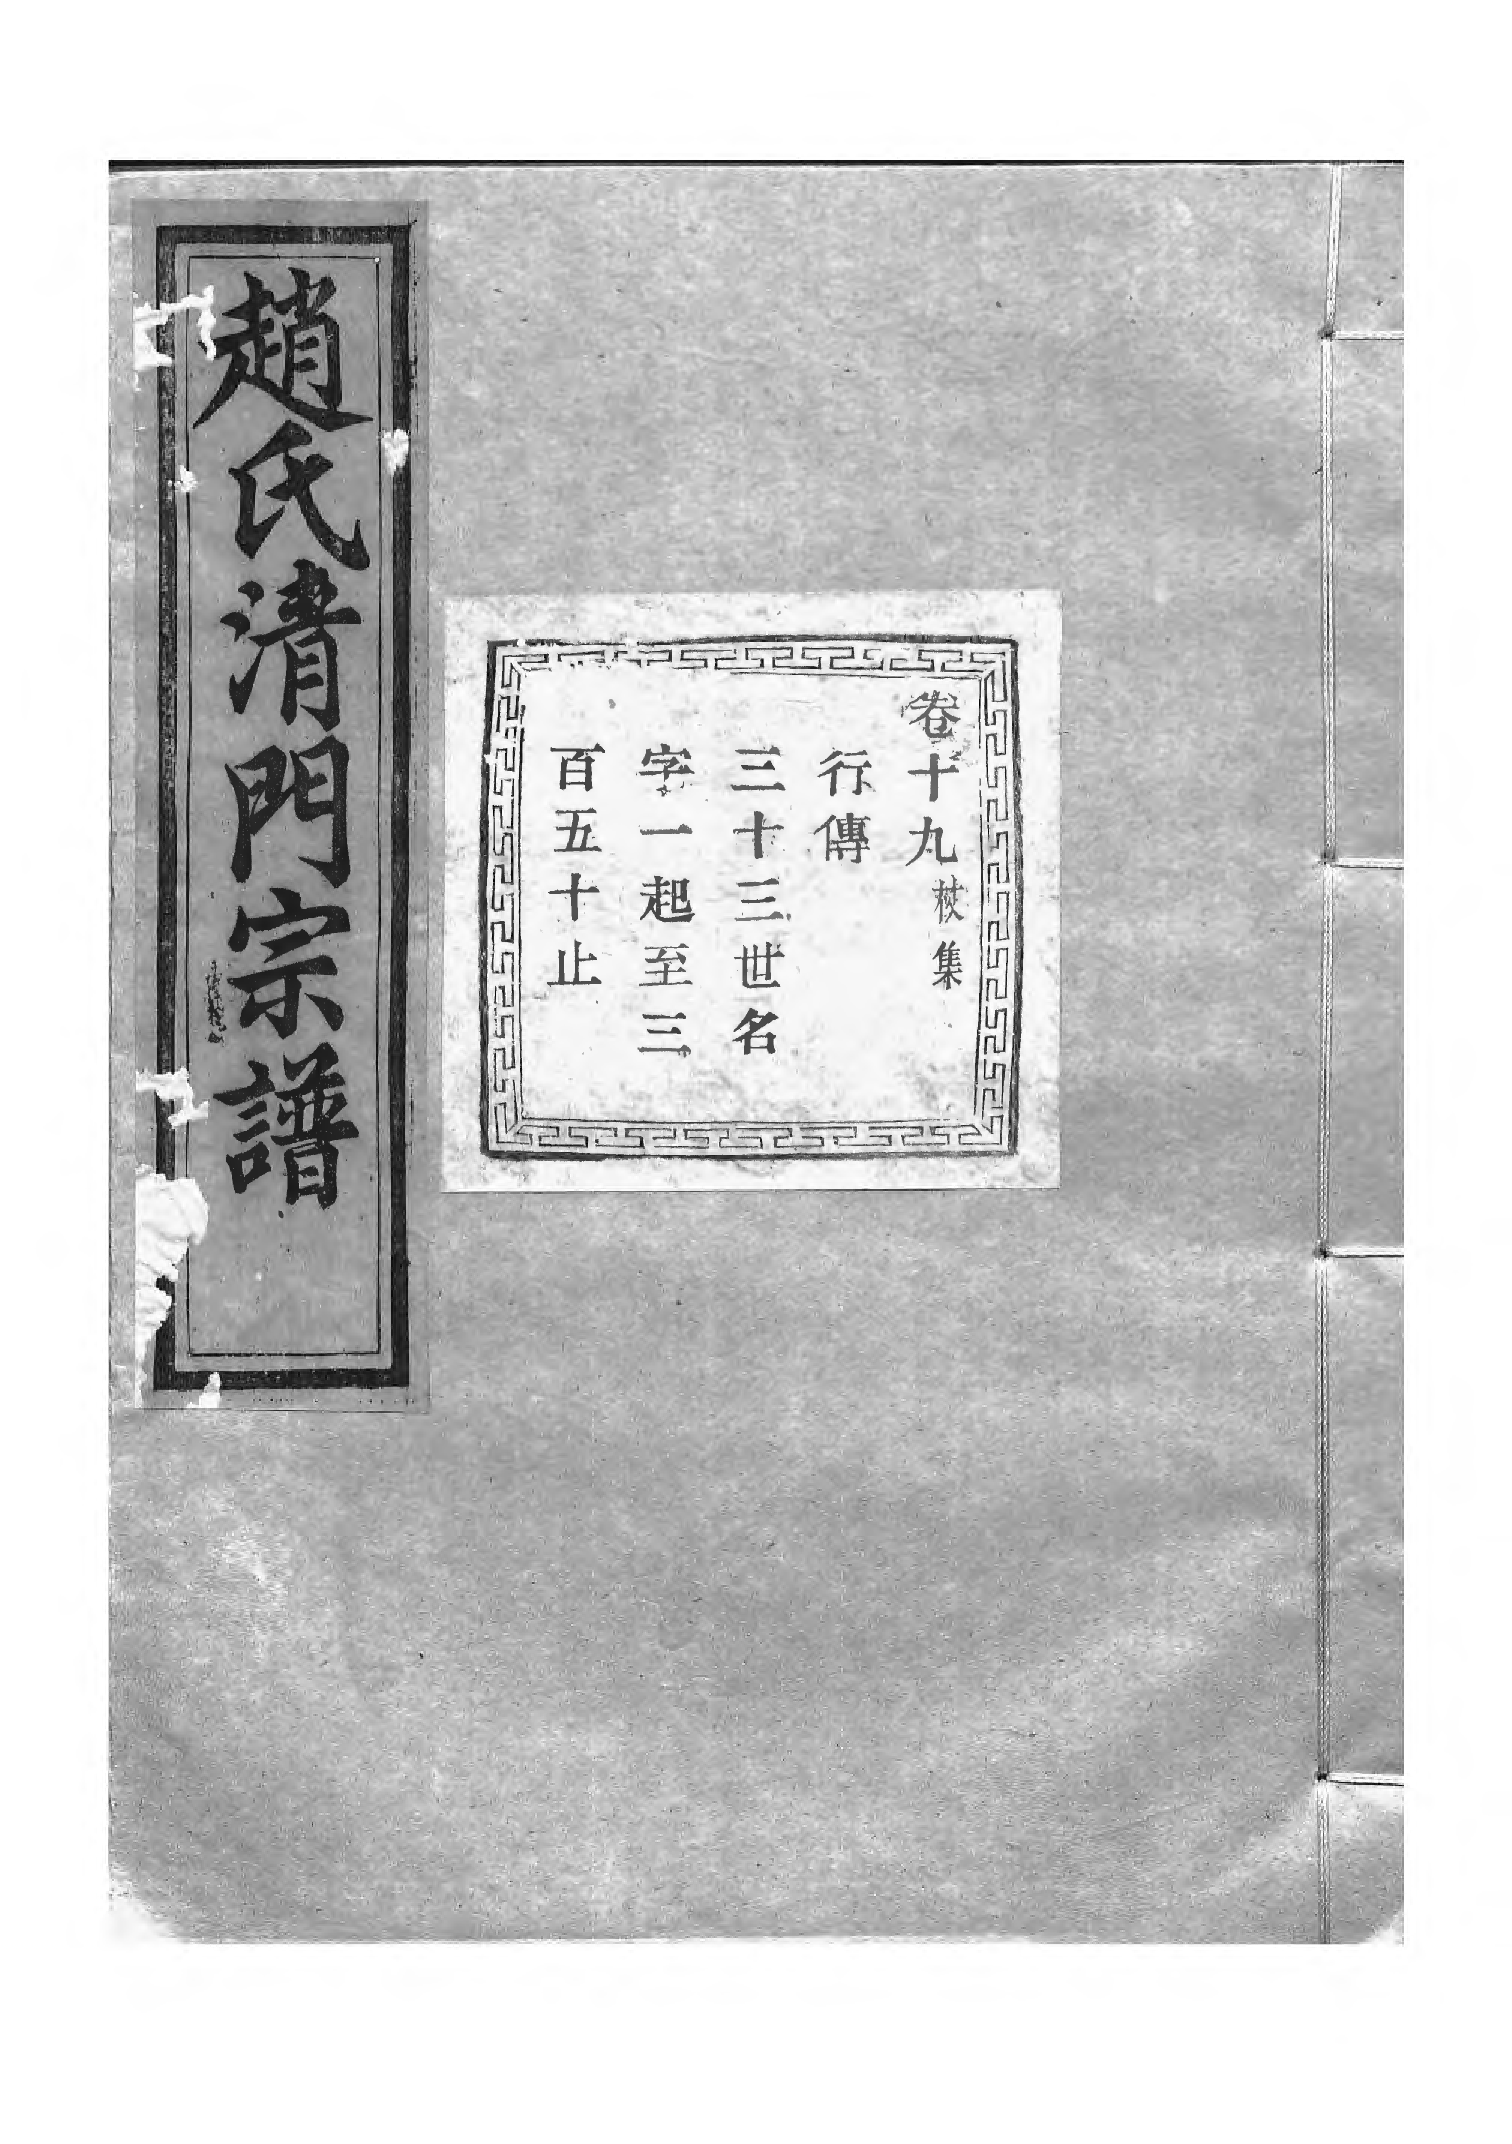 卷十九杖集
行傳
三十三世名
字一起至三
百五十止
趙氏清門宗譜